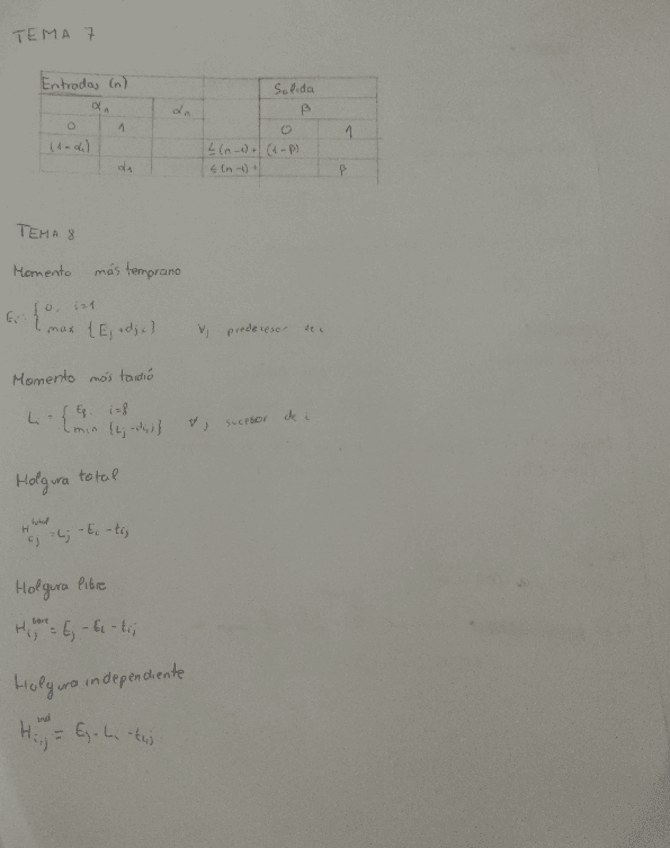 TEMA 7
Entradas (n) Salida
αn αn β
0 1 0 1
(1-αi) ≤(n-1)+ (1-β)
αn ≤(n-1)+ β
TEMA 8
Momento más temprano
Ei = { 0, i=1
max {Ej + dji} ∀j predecesor de i
Momento más tardió
Li = { Ef, i=f
min {Lj - dij} ∀j sucesor de i
Holgura total
H i,j total = Lj - Ei - tij
Holgura libre
H i,j libre = Ej - Ei - tij
Holgura independiente
H i,j ind = Ej - Li - ti,j